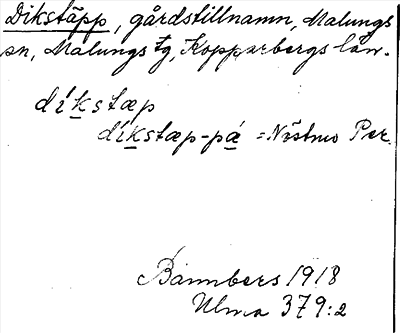 Dikstäpp, gårdstillnamn, Malungs
sn, Malungs tg, Kopparbergs län.
díkstæp
díkstæp-pǽ = Nistmo Per.
Bannbers 1918
Ulma 379:2